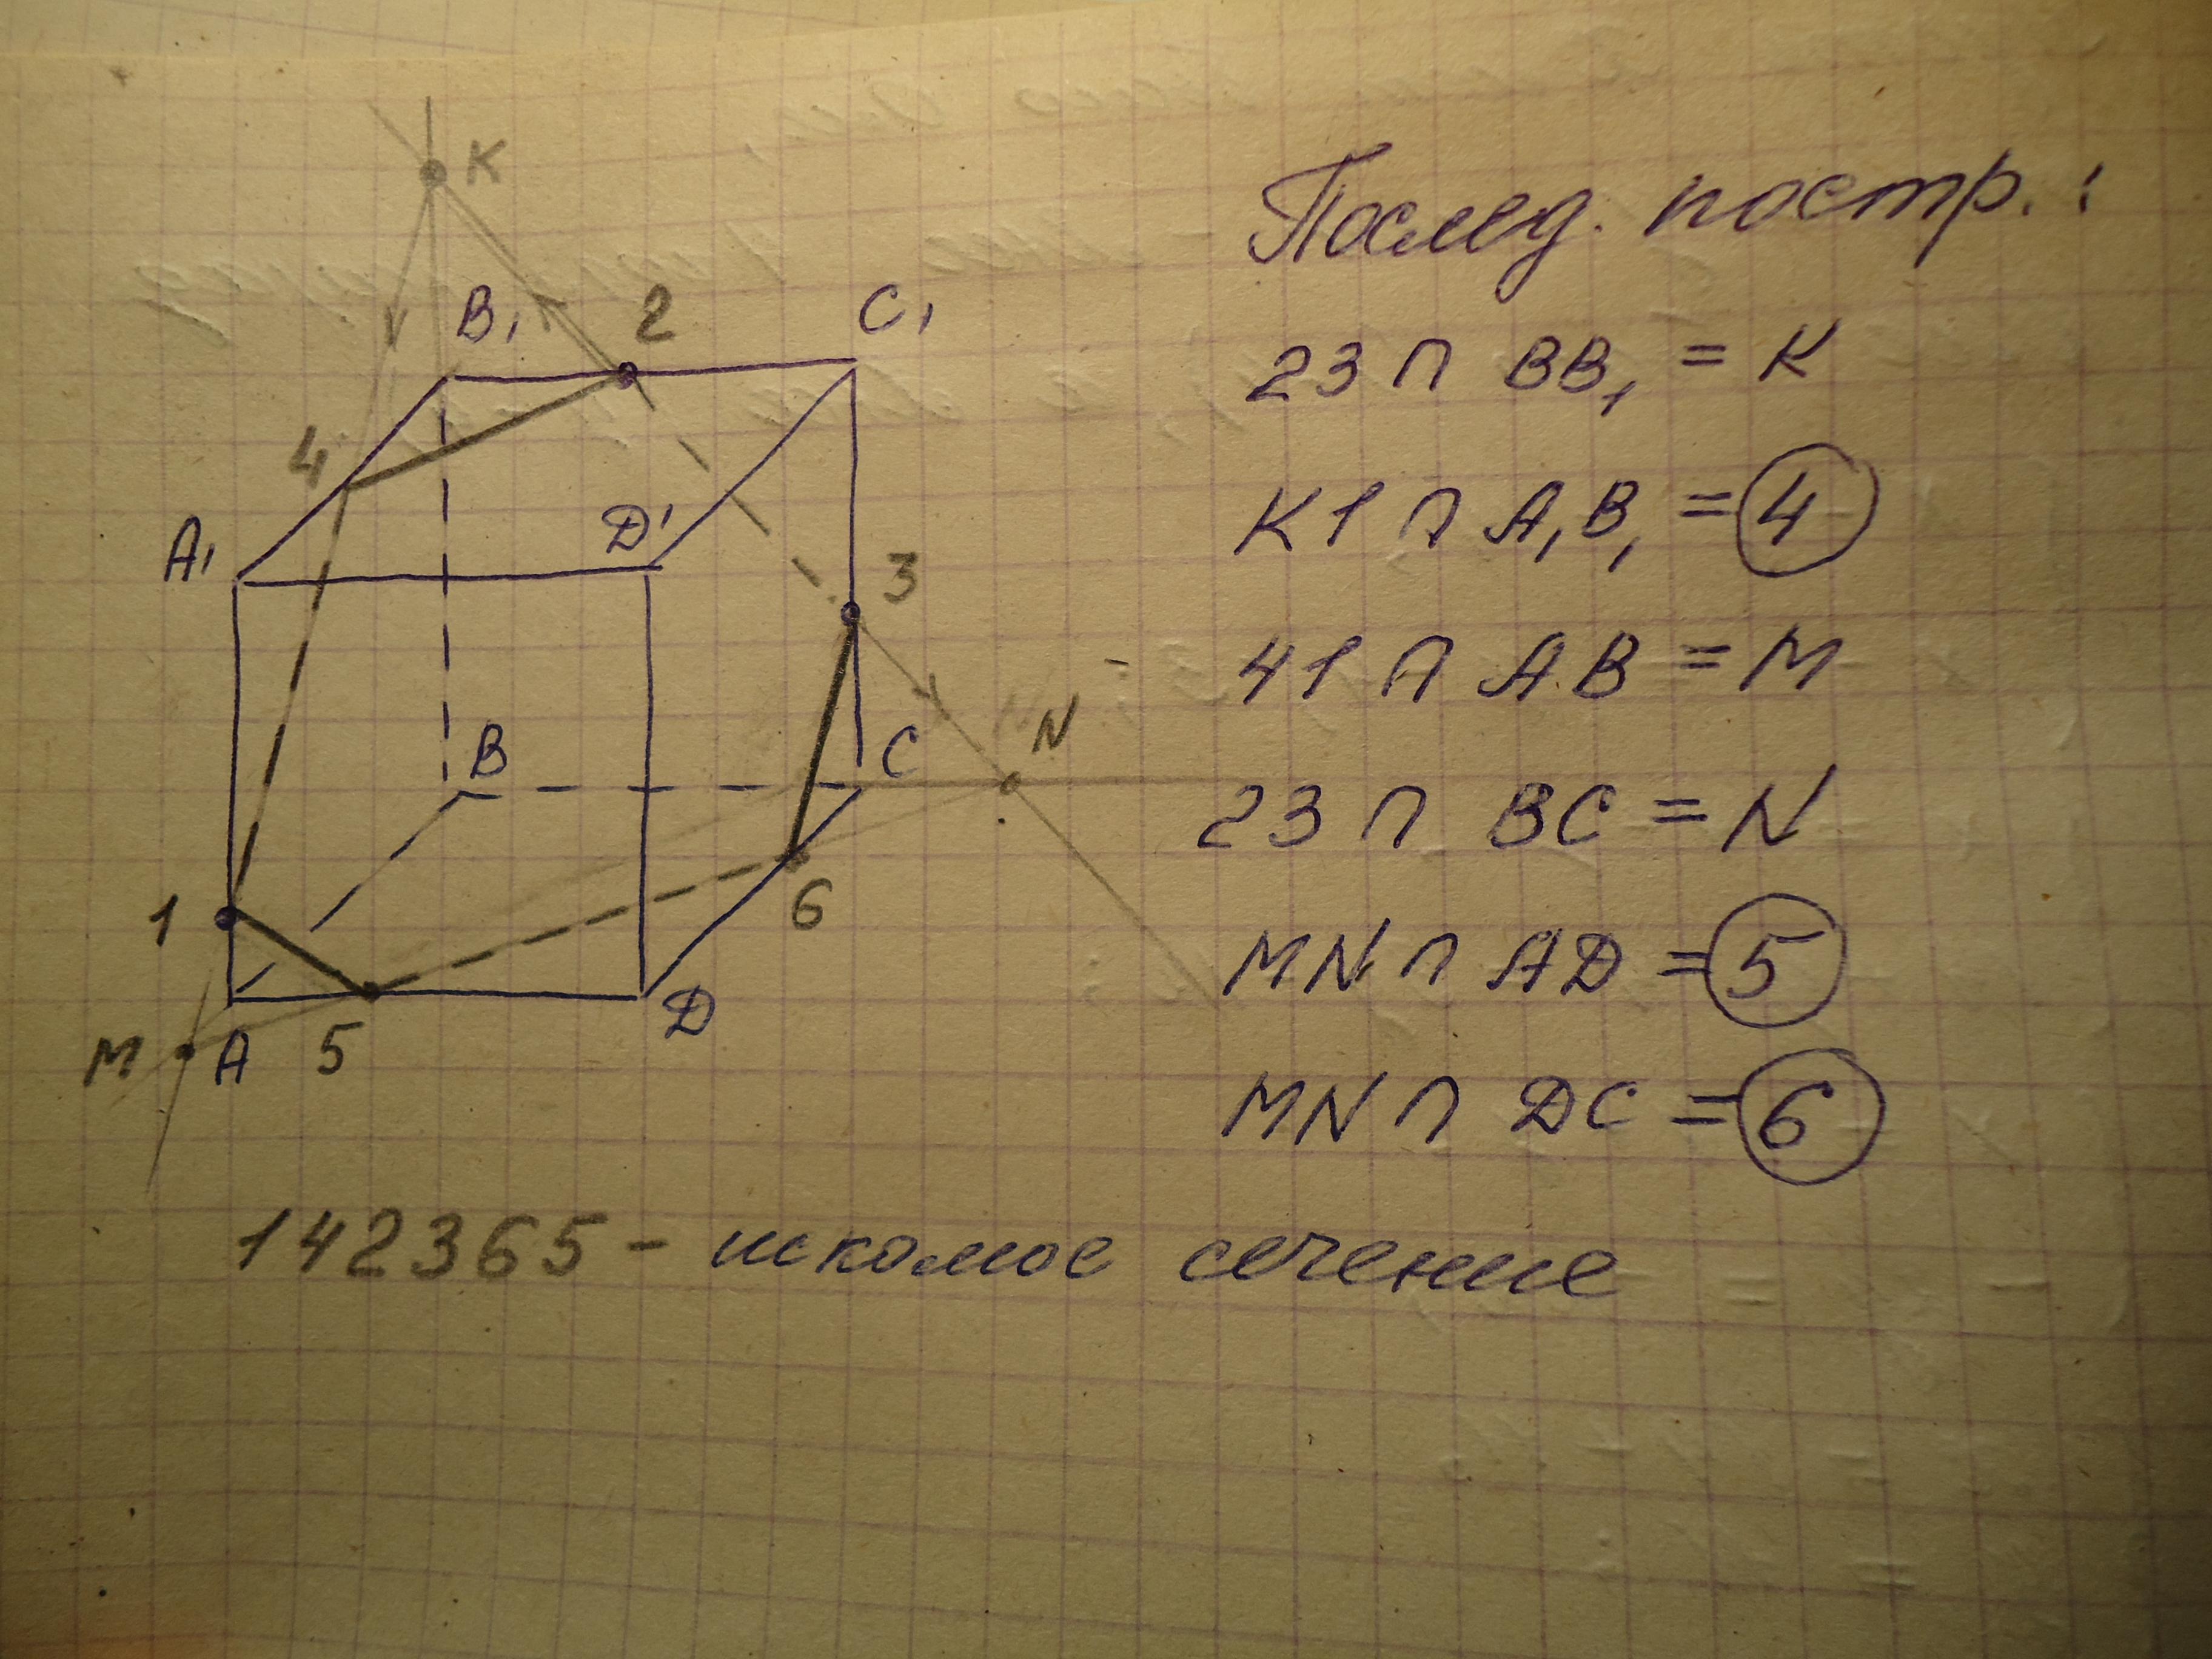 K
B₁
2
C₁
4
A₁
D'
3
B
C
N
1
6
M
A
5
D
Послед. постр.:
23 ∩ BB₁ = K
K1 ∩ A₁B₁ = 4
41 ∩ AB = M
23 ∩ BC = N
MN ∩ AD = 5
MN ∩ DC = 6
142365 - искомое сечение